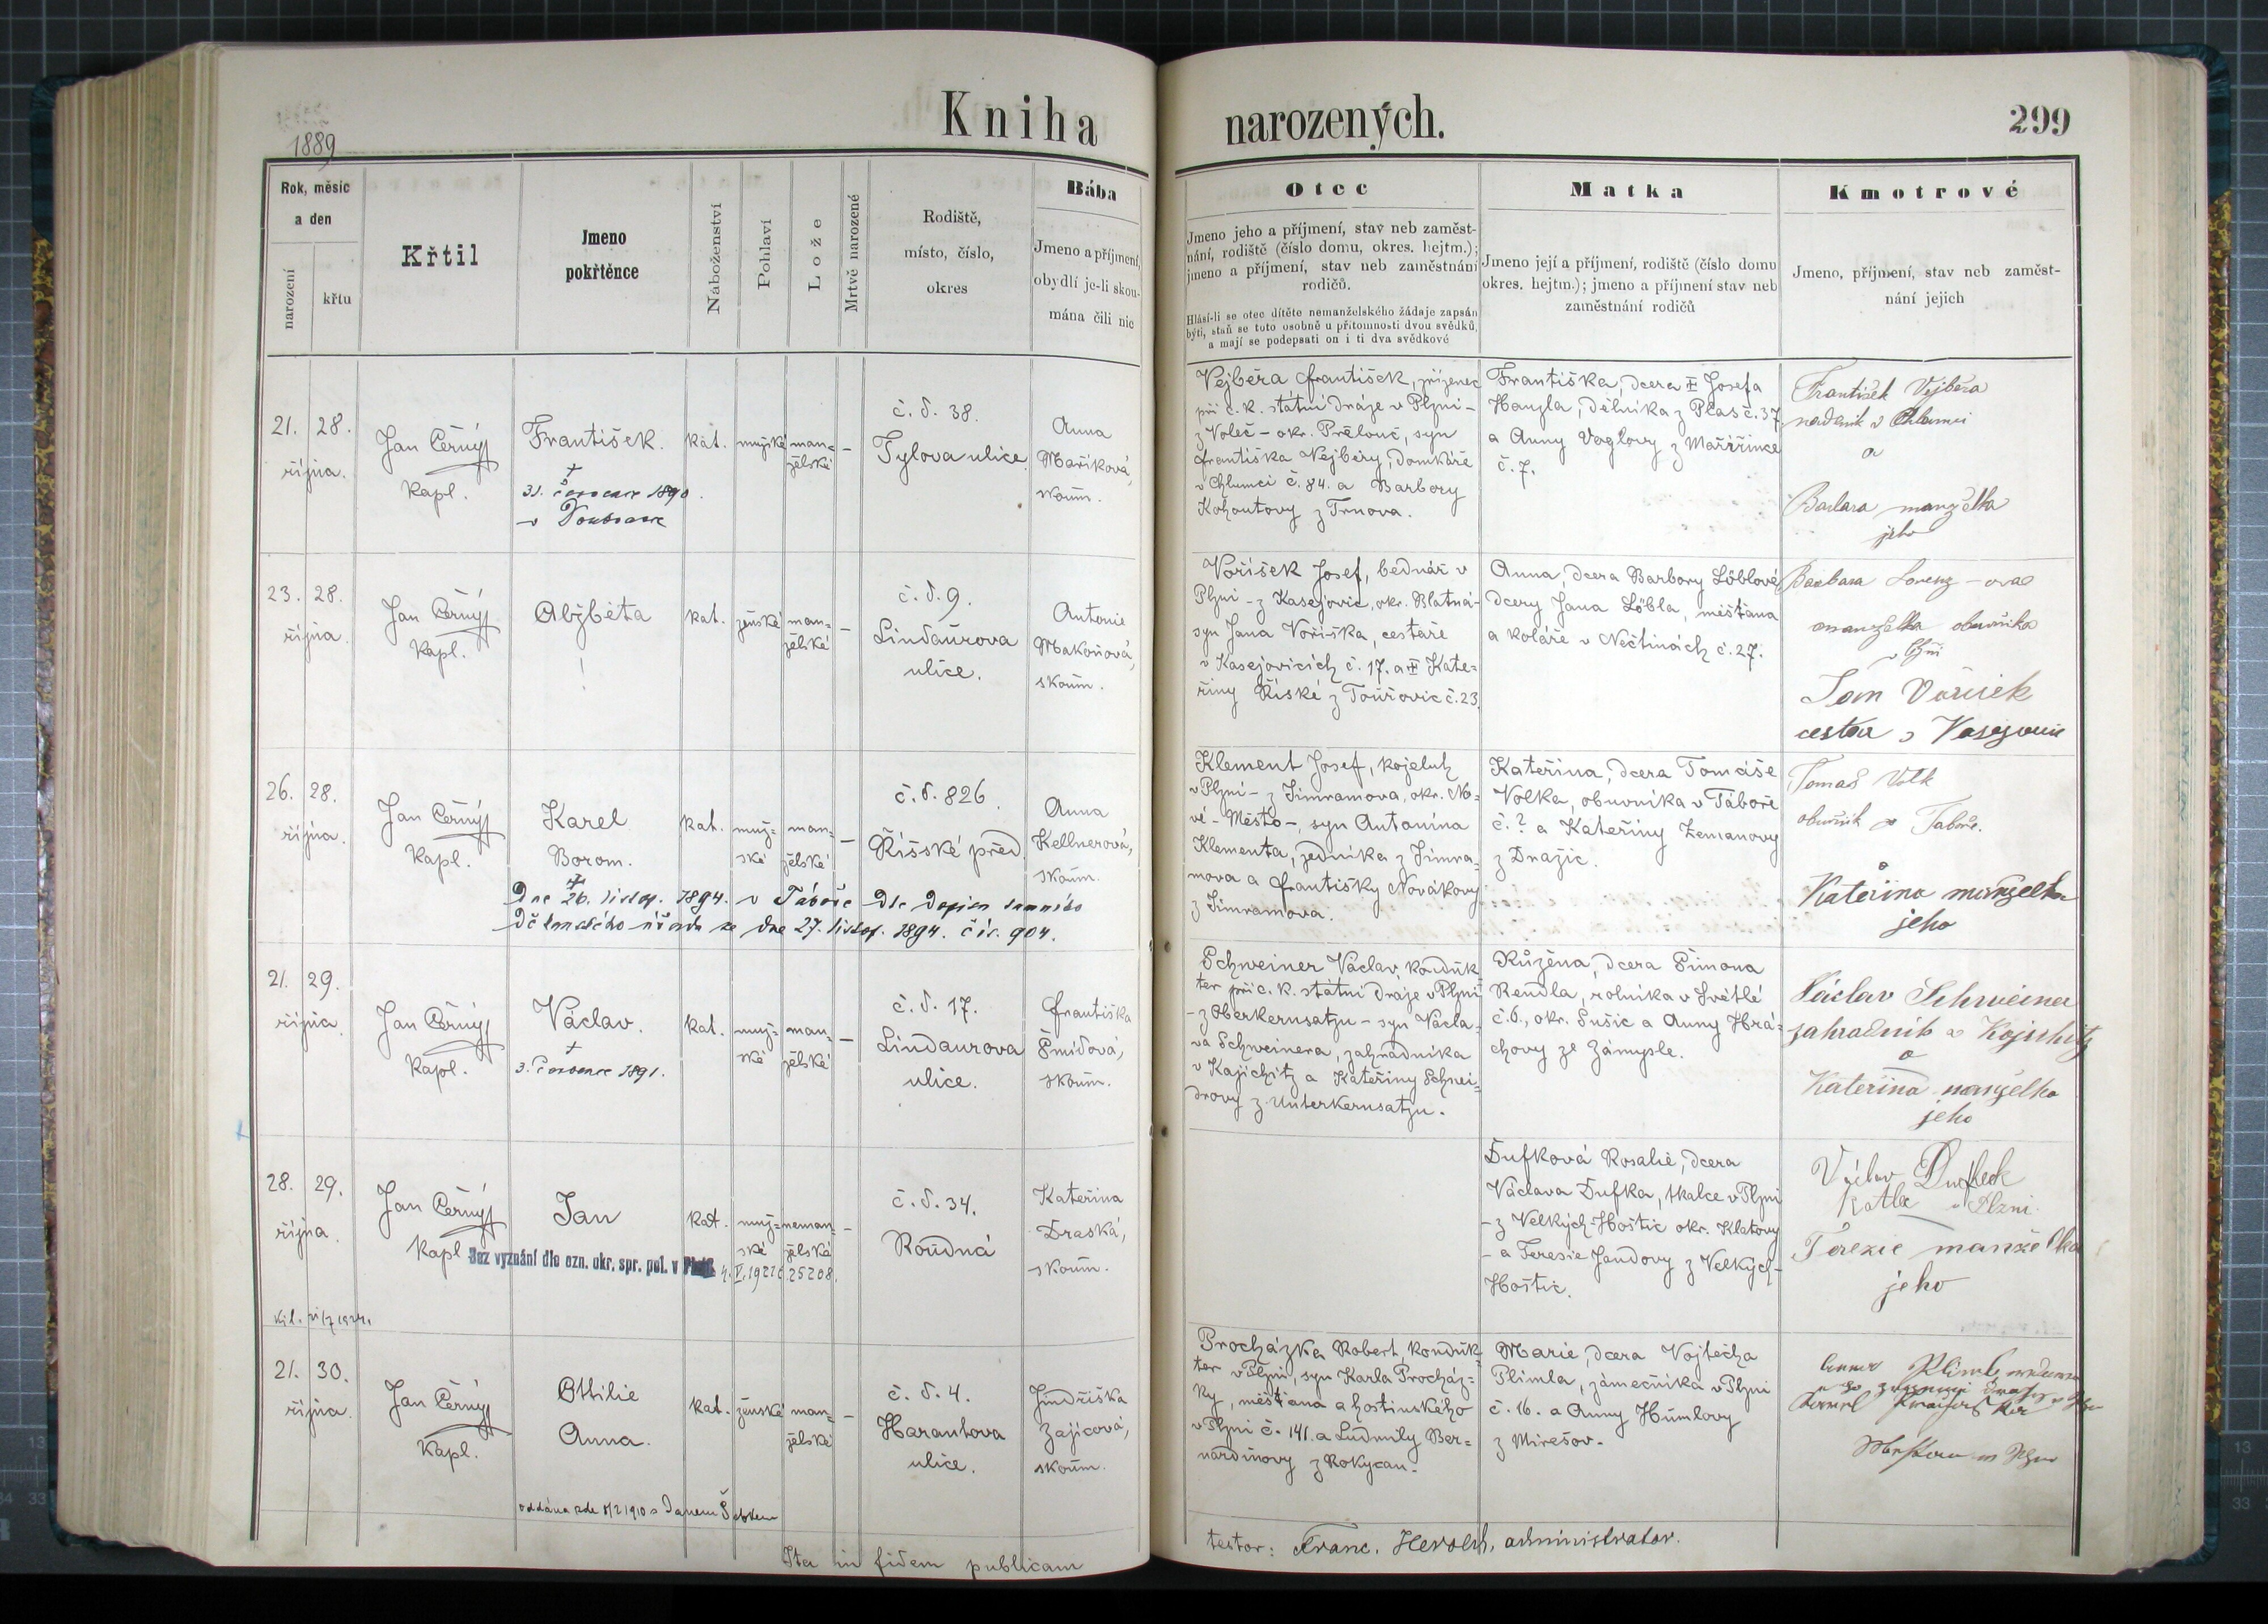 1889
Kniha narozených.
299
Rok, měsíc
a den
narození
křtu
Křtil
Jmeno
pokřtěnce
Náboženství
Pohlaví
Lože
Mrtvě narozené
Rodiště,
místo, číslo,
okres
Bába
Jmeno a příjmení,
obydlí je-li skou-
mána čili nic
Otec
Jmeno jeho a příjmení, stav neb zaměst-
nání, rodiště (číslo domu, okres. hejtm.);
jmeno a příjmení, stav neb zaměstnání
rodičů.
Hlásí-li se otec dítěte nemanželského žádaje zapsán
býti, staň se toto osobně u přítomnosti dvou svědků,
a mají se podepsati on i ti dva svědkové
Matka
Jmeno její a příjmení, rodiště (číslo domu
okres. hejtm.); jmeno a příjmení stav neb
zaměstnání rodičů
Kmotrové
Jmeno, příjmení, stav neb zaměst-
nání jejich
21. 28.
října.
Jan Černý
Kapl.
František.
†
31. července 1890.
v Doubravce
kat.
mužské
man-
želské
–
č. d. 38.
Tylova ulice
Anna
Maříková,
skoum.
Vejběra František, zřízenec
při c. k. státní dráze v Plzni –
z Voleč – okr. Přelouč, syn
Františka Vejběry, domkáře
v Chlumci č. 84. a Barbory
Kohoutovy z Trnova.
Františka, dcera † Josefa
Hanzla, dělníka z Plas č. 37
a Anny Voglovy z
č. 7.
František Vejběra
v Chlumci
a
Barbara manželka
jeho
23. 28.
října.
Jan Černý
Kapl.
Alžběta
kat.
ženské
man-
želské
–
č. d. 9.
Lindaurova
ulice.
Antonie
Makoňová,
skoum.
Voříšek Josef, bednář v
Plzni – z Kasejovic, okr. Blatná –
syn Jana Voříška, cestáře
v Kasejovicích č. 17. a † Kate-
řiny Říské z č. 23.
Anna, dcera Barbory Löblové
dcery Jana Löbla, měšťana
a koláře v Nečtinách č. 27.
Barbara Lorenz – ova
manželka obuvníka
v Plzni
Jan Voříšek
26. 28.
října.
Jan Černý
Kapl.
Karel
Borom.
†
Dne 26. listop. 1894. v Táboře Dle dopisu tamního
děkanského úřadu ze dne 27. listop. 1894. čís. 904.
kat.
muž-
ské
man-
želské
–
č. d. 826.
Říšské před.
Anna
Kellnerová,
skoum.
Klement Josef, kojeluh
v Plzni – z Jimramova, okr. No-
vé – Město –, syn Antonína
Klementa, zedníka z Jimra-
mova a Františky Novákovy
z Jimramova.
Kateřina, dcera Tomáše
Volka, obuvníka v Táboře
č. ? a Kateřiny Zemanovy
z Dražic.
Tomáš Volk
obuvník v Táboře.
a
Kateřina manželka
jeho
21. 29.
října.
Jan Černý
Kapl.
Václav.
†
3. července 1891.
kat.
muž-
ské
man-
želské
–
č. d. 17.
Lindaurova
ulice.
Františka
Šmídová,
skoum.
Schweiner Václav, konduk-
ter při c. k. státní dráze v Plzni
– z Oberkernsatzu – syn Václa-
va Schweinera, zahradníka
v Kajichitz a Kateřiny Schnei-
drovy z Unterkernsatzu.
Růžena, dcera Šimona
Rendla, rolníka v Světlé
č. 6., okr. Sušic a Anny Hrá-
chovy ze Zámyšle.
Václav Schweiner
zahradník
a
Kateřina manželka
jeho
28. 29.
října.
Jan Černý
Kapl.
Jan
Bez vyznání dle ozn. okr. spr. pol. v
4. V. 1921 č. 25208.
kat.
muž-
ské
neman-
želské
–
č. d. 34.
Roudná
Kateřina
Draská,
skoum.
Dufková Rosalie, dcera
Václava Dufka, tkalce v Plzni
– z Velkých-Hoštic okr. Klatovy
– a Teresie Jandovy z Velkých-
Hoštic.
Václav Dufek
v Plzni
Terezie manželka
jeho
21. 30.
října.
Jan Černý
Kapl.
Ottilie
Anna.
oddána zde 8/2 1910 s Janem
kat.
ženské
man-
želské
–
č. d. 4.
Harantova
ulice.
Jindřiška
Zajícová,
skoum.
Procházka Robert, konduk-
ter v Plzni, syn Karla Procház-
ky, měšťana a hostinského
v Plzni č. 141. a Ludmily Ber-
nardinovy z Rokycan.
Marie, dcera Vojtěcha
Plimla, zámečníka v Plzni
č. 16. a Anny Humlovy
z Mirešov.
Ita in fidem publicam
testor: Franc. Herold, administrator.